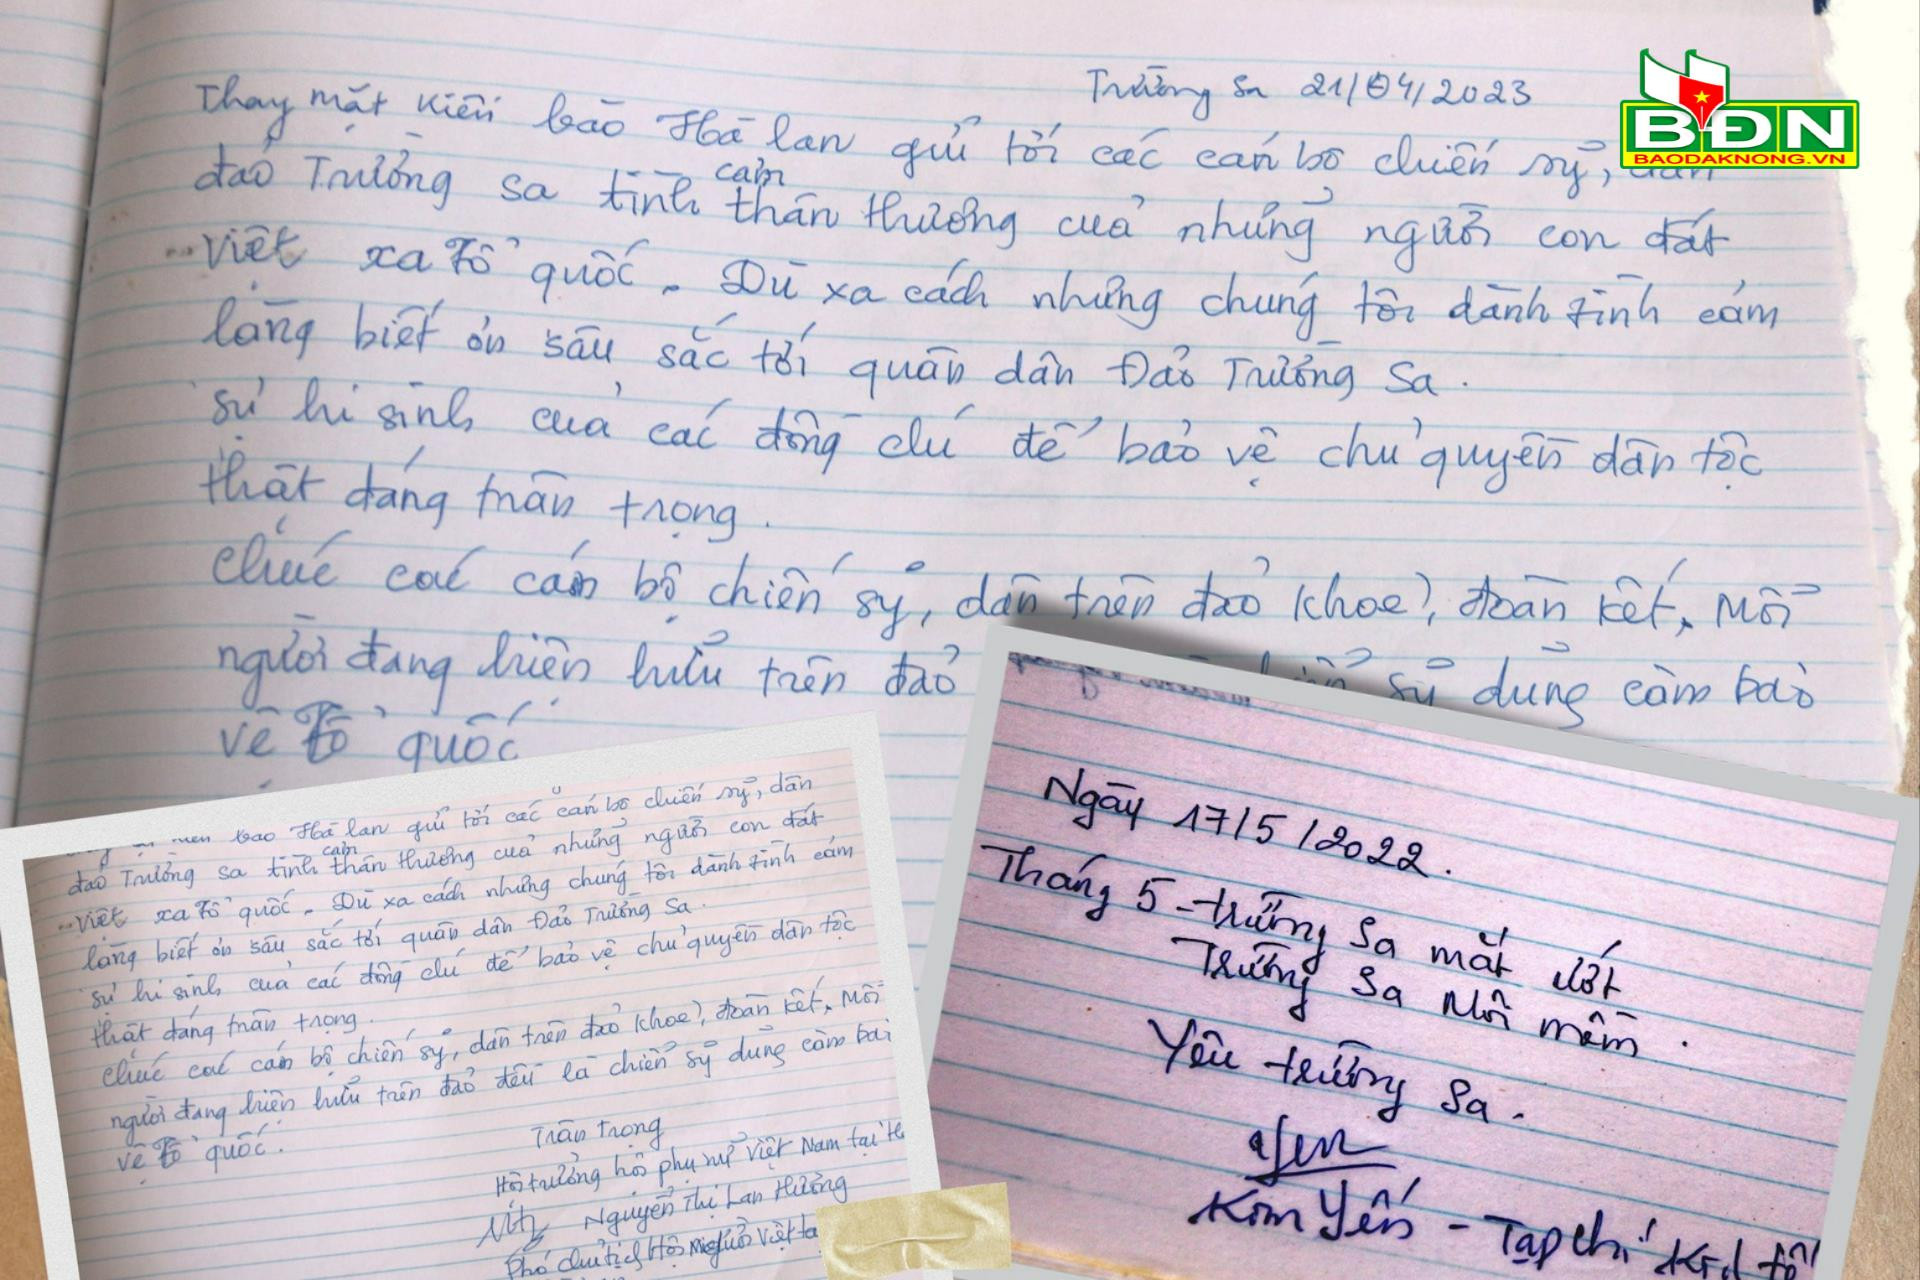 Trường Sa 21/04/2023
BĐN
BAODAKNONG.VN
Thay mặt kiều bào Hà lan gửi tới các cán bộ chiến sỹ, dân
đảo Trường Sa tình cảm thân thương của những người con đất
Việt xa Tổ quốc. Dù xa cách nhưng chúng tôi dành tình cảm
lòng biết ơn sâu sắc tới quân dân Đảo Trường Sa.
sự hi sinh của các đồng chí để bảo vệ chủ quyền dân tộc
thật đáng trân trọng.
chúc các cán bộ chiến sỹ, dân trên đảo khoẻ, đoàn kết, Mỗi
người đang hiện hữu trên đảo sỹ dũng cảm bảo
vệ Tổ quốc
bào Hà lan gửi tới các cán bộ chiến sỹ, dân
đảo Trường Sa tình cảm thân thương của những người con đất
Việt xa Tổ quốc. Dù xa cách nhưng chúng tôi dành tình cảm
lòng biết ơn sâu sắc tới quân dân Đảo Trường Sa.
sự hi sinh của các đồng chí để bảo vệ chủ quyền dân tộc
thật đáng trân trọng.
chúc các cán bộ chiến sỹ, dân trên đảo khoẻ, đoàn kết, Mỗi
người đang hiện hữu trên đảo đều là chiến sỹ dũng cảm bảo
vệ Tổ quốc.
Trân Trọng
Hội trưởng hội phụ nữ Việt Nam tại
Nguyễn Thị Lan Hương
Phó chủ tịch Hội người Việt
Ngày 17/5/2022.
Tháng 5 - trường Sa mắt ướt
Trường Sa Môi mềm.
Yêu trường Sa.
Kim Yến - Tạp chí